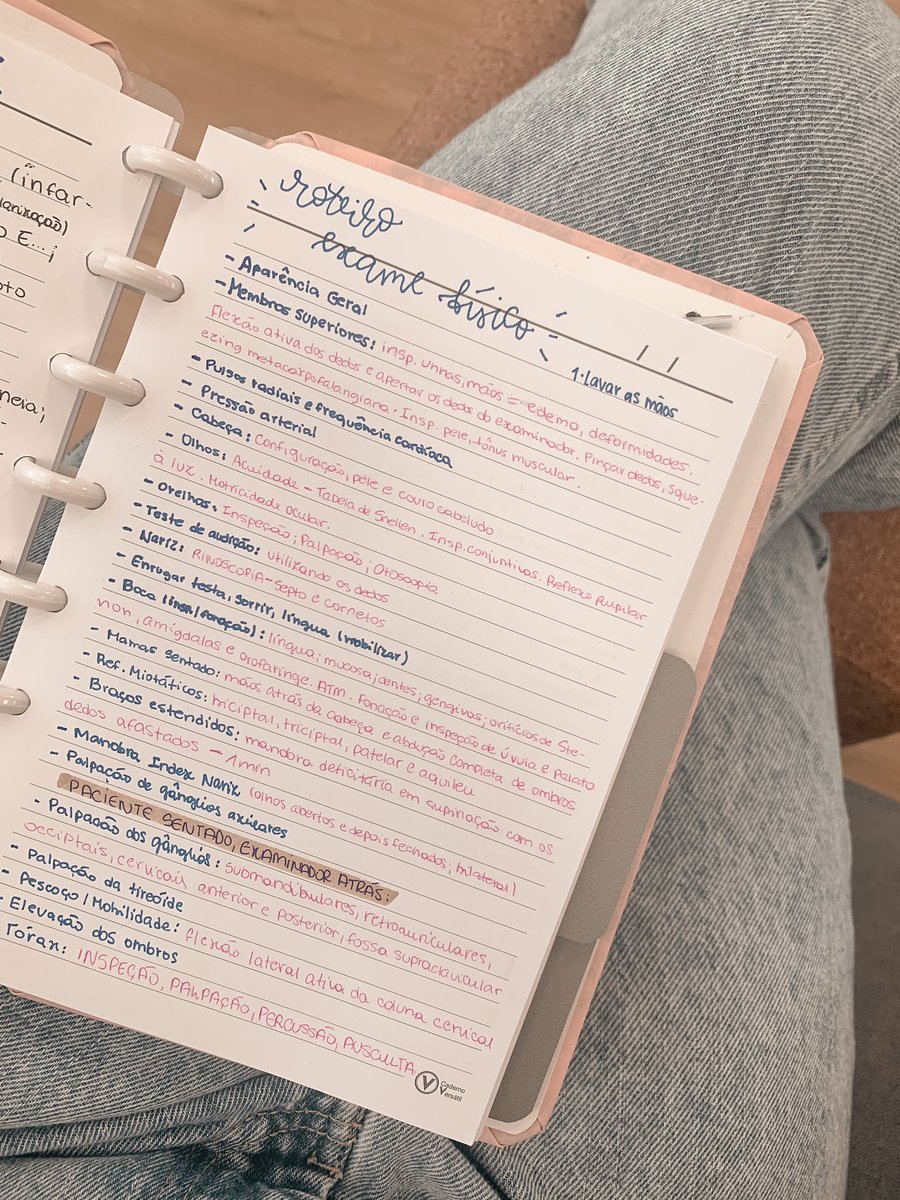 (infar-
arização)
O E...;
oto
neia;
roteiro
exame físico
1. lavar as mãos
- Aparência Geral
- Membros superiores: insp. unhas, mãos = edema, deformidades.
Flexão ativa dos dedos e apertar os dedos do examinador. Pinçar dedos, sque-
ezing metacarpofalangiana. Insp. pele, tônus muscular.
- Pulsos radiais e frequência cardíaca
- Pressão arterial
- Cabeça: Configuração, pele e couro cabeludo
- Olhos: Acuidade - Tabela de Snellen. Insp. conjuntivas. Reflexo Pupilar
à luz. Motricidade ocular.
- Orelhas: Inspeção; Palpação; Otoscopia
- Teste de audição: utilizando os dedos
- Nariz: RINOSCOPIA - Septo e cornetos
- Enrugar testa, sorrir, língua (mobilizar)
- Boca (insp/fonação): língua; mucosa; dentes; gengivas; orifícios de Ste-
non, amígdalas e orofaringe. ATM. Fonação e inspeção de úvula e palato
- Mamas sentado: mãos atrás da cabeça e abdução completa de ombros
- Ref. Miotáticos: biciptal, triciptal, patelar e aquileu
- Braços estendidos: manobra deficitária em supinação com os
dedos afastados - 1 min
- Manobra Index Nariz (olhos abertos e depois fechados; bilateral)
- Palpação de gânglios axilares
PACIENTE SENTADO, EXAMINADOR ATRÁS:
- Palpação dos gânglios: submandibulares, retroauriculares,
occiptais, cervicais anterior e posterior, fossa supraclavicular
- Palpação da tireóide
- Pescoço/Mobilidade: flexão lateral ativa da coluna cervical
- Elevação dos ombros
Tórax: INSPEÇÃO, PALPAÇÃO, PERCUSSÃO, AUSCULTA
Caderno
Versátil